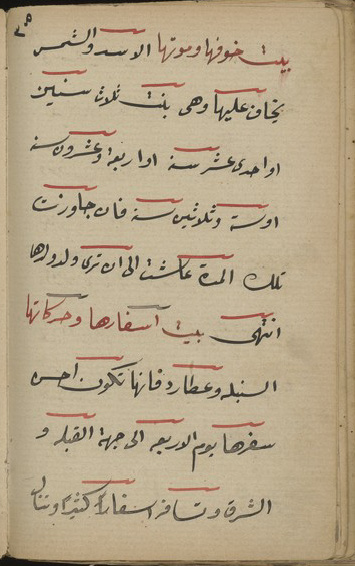 ٣٥
بيت خوفها وموتها الاسد والشمس
يخاف عليها وهى بنت ثلاث سنين
او احدى عشر سنه او اربعة وعشرون سنه
او ستة وثلاثين سنه فان جاوزت
تلك المدة عاشت الى ان ترى ولد ولدها
انتهى بيت اسفارها وحركاتها
السنبله وعطارد فانها تكون احسن
سفرها يوم الاربعه الى جهة القبله و
الشرق وتسافر اسفارًا كثيرًا وتنال